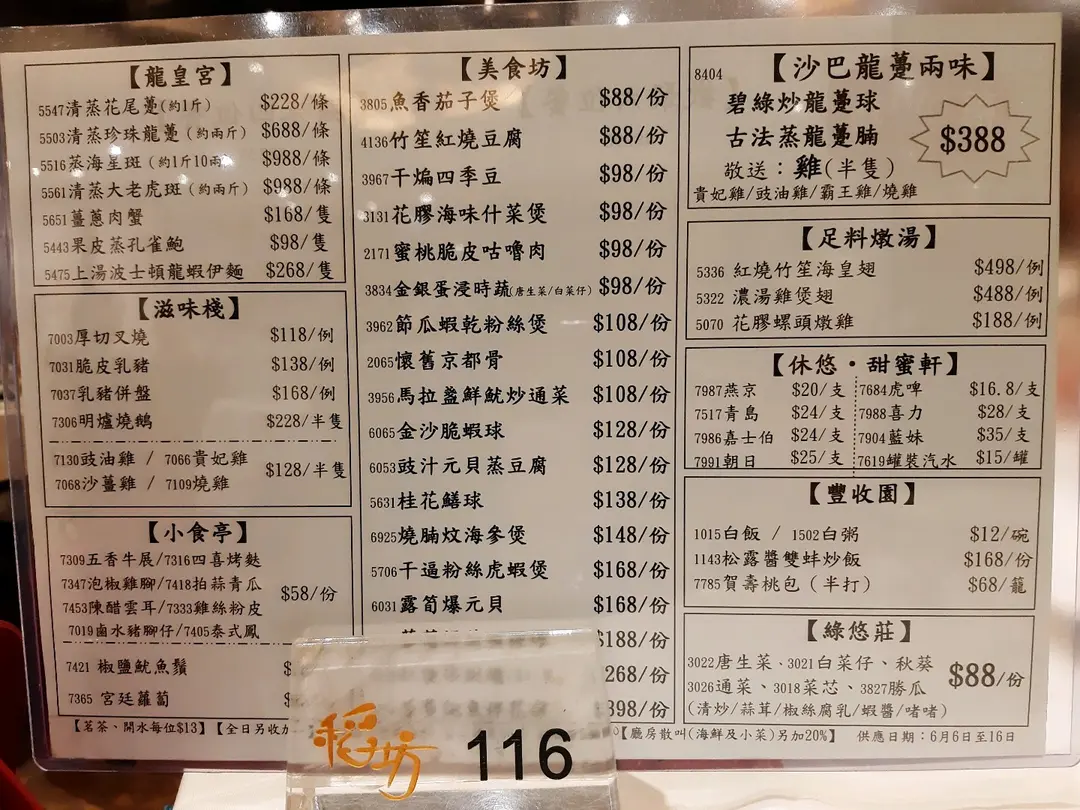 【龍皇宮】
5547清蒸花尾躉(約1斤) $228/條
5503清蒸珍珠龍躉(約兩斤) $688/條
5516蒸海星斑(約1斤10兩) $988/條
5561清蒸大老虎斑(約兩斤) $988/條
5651薑蔥肉蟹 $168/隻
5443果皮蒸孔雀鮑 $98/隻
5475上湯波士頓龍蝦伊麵 $268/隻
【滋味棧】
7003厚切叉燒 $118/例
7031脆皮乳豬 $138/例
7037乳豬併盤 $168/例
7306明爐燒鵝 $228/半隻
7130豉油雞 / 7066貴妃雞
7068沙薑雞 / 7109燒雞
$128/半隻
【小食亭】
7309五香牛展/7316四喜烤麩
7347泡椒雞腳/7418拍蒜青瓜
7453陳醋雲耳/7333雞絲粉皮
7019鹵水豬腳仔/7405泰式鳳
$58/份
7421 椒鹽魷魚鬚 $
7365 宮廷蘿蔔
【茗茶、開水每位$13】【全日另收加
【美食坊】
3805魚香茄子煲 $88/份
4136竹笙紅燒豆腐 $88/份
3967干煸四季豆 $98/份
3131花膠海味什菜煲 $98/份
2171蜜桃脆皮咕嚕肉 $98/份
3834金銀蛋浸時蔬(唐生菜/白菜仔) $98/份
3962節瓜蝦乾粉絲煲 $108/份
2065懷舊京都骨 $108/份
3956馬拉盞鮮魷炒通菜 $108/份
6065金沙脆蝦球 $128/份
6053豉汁元貝蒸豆腐 $128/份
5631桂花鱔球 $138/份
6925燒腩炆海參煲 $148/份
5706干逼粉絲虎蝦煲 $168/份
6031露筍爆元貝 $168/份
$188/份
268/份
398/份
8404 【沙巴龍躉兩味】
碧綠炒龍躉球
古法蒸龍躉腩
敬送：雞(半隻)
貴妃雞/豉油雞/霸王雞/燒雞
$388
【足料燉湯】
5336 紅燒竹笙海皇翅 $498/例
5322 濃湯雞煲翅 $488/例
5070 花膠螺頭燉雞 $188/例
【休悠·甜蜜軒】
7987燕京 $20/支 7684虎啤 $16.8/支
7517青島 $24/支 7988喜力 $28/支
7986嘉士伯 $24/支 7904藍妹 $35/支
7991朝日 $25/支 7619罐裝汽水 $15/罐
【豐收園】
1015白飯 / 1502白粥 $12/碗
1143松露醬雙蚌炒飯 $168/份
7785賀壽桃包(半打) $68/籠
【綠悠莊】
3022唐生菜、3021白菜仔、秋葵
3026通菜、3018菜芯、3827勝瓜
(清炒/蒜茸/椒絲腐乳/蝦醬/啫啫)
$88/份
【廳房散叫(海鮮及小菜)另加20%】 供應日期：6月6日至16日
稻坊 116